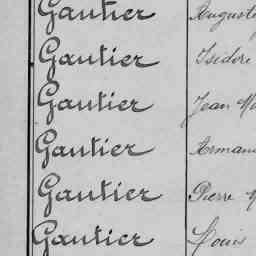 Gautier Auguste
Gautier Isidore
Gautier Jean
Gautier Armand
Gautier Pierre
Gautier Louis